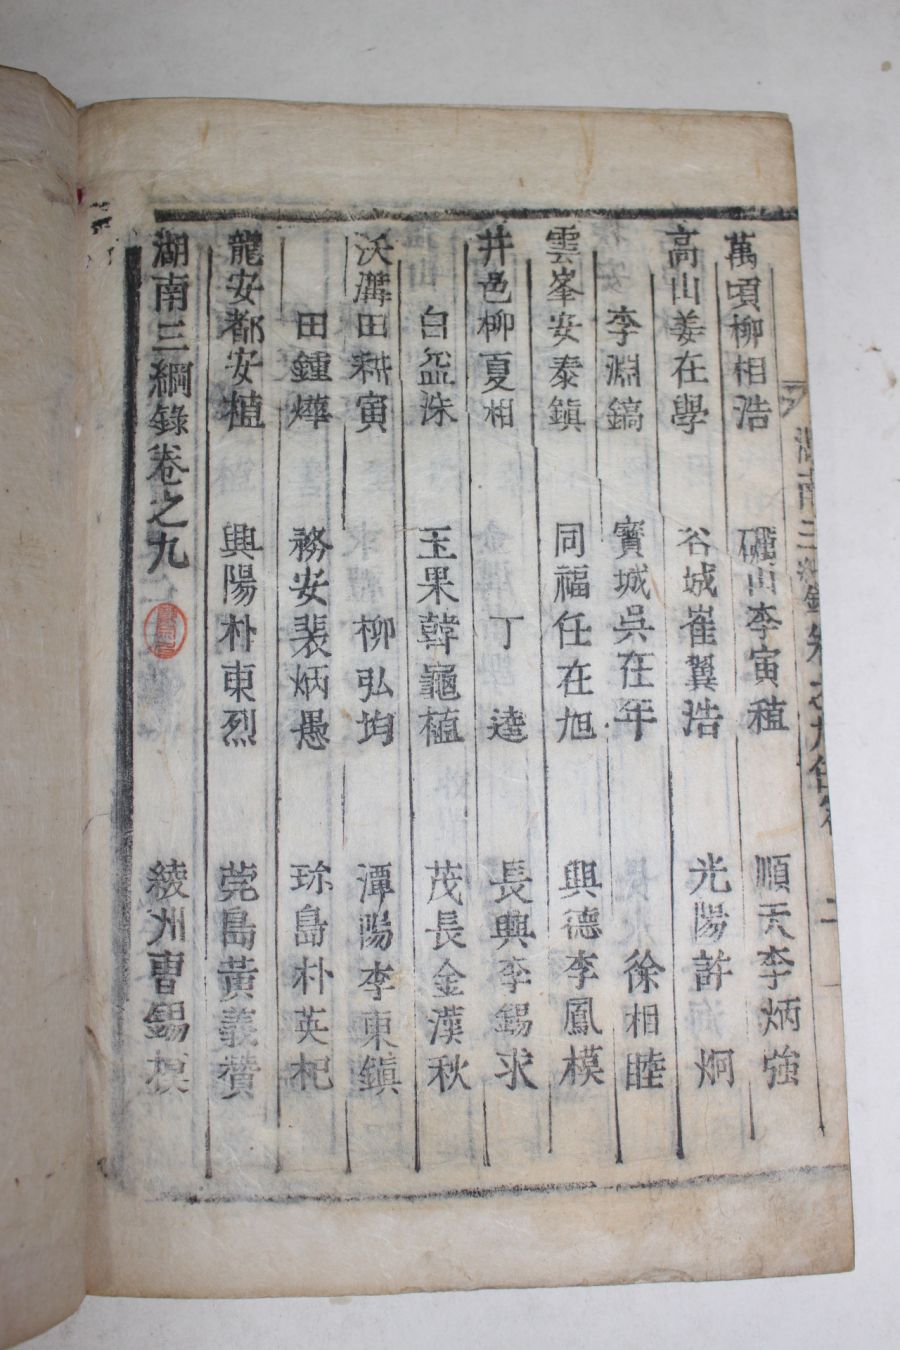 萬頃柳相浩 礪山李寅稙 順天李炳強
高山姜在學 谷城崔翼浩 光陽許炯
李淵鎬 寶城吳在年 徐相睦
雲峯安泰鎮 同福任在旭 興德李鳳模
井邑柳夏相 丁逵 長興李錫求
白盆洙 玉果韓龜植 茂長金漢秋
沃溝田耕寅 柳弘均 潭陽李東鎮
田鍾燁 務安裴炳愚 珍島朴英杞
龍安都安植 興陽朴東烈 莞島黃義贊
湖南三綱錄卷之九 綾州曺錫模